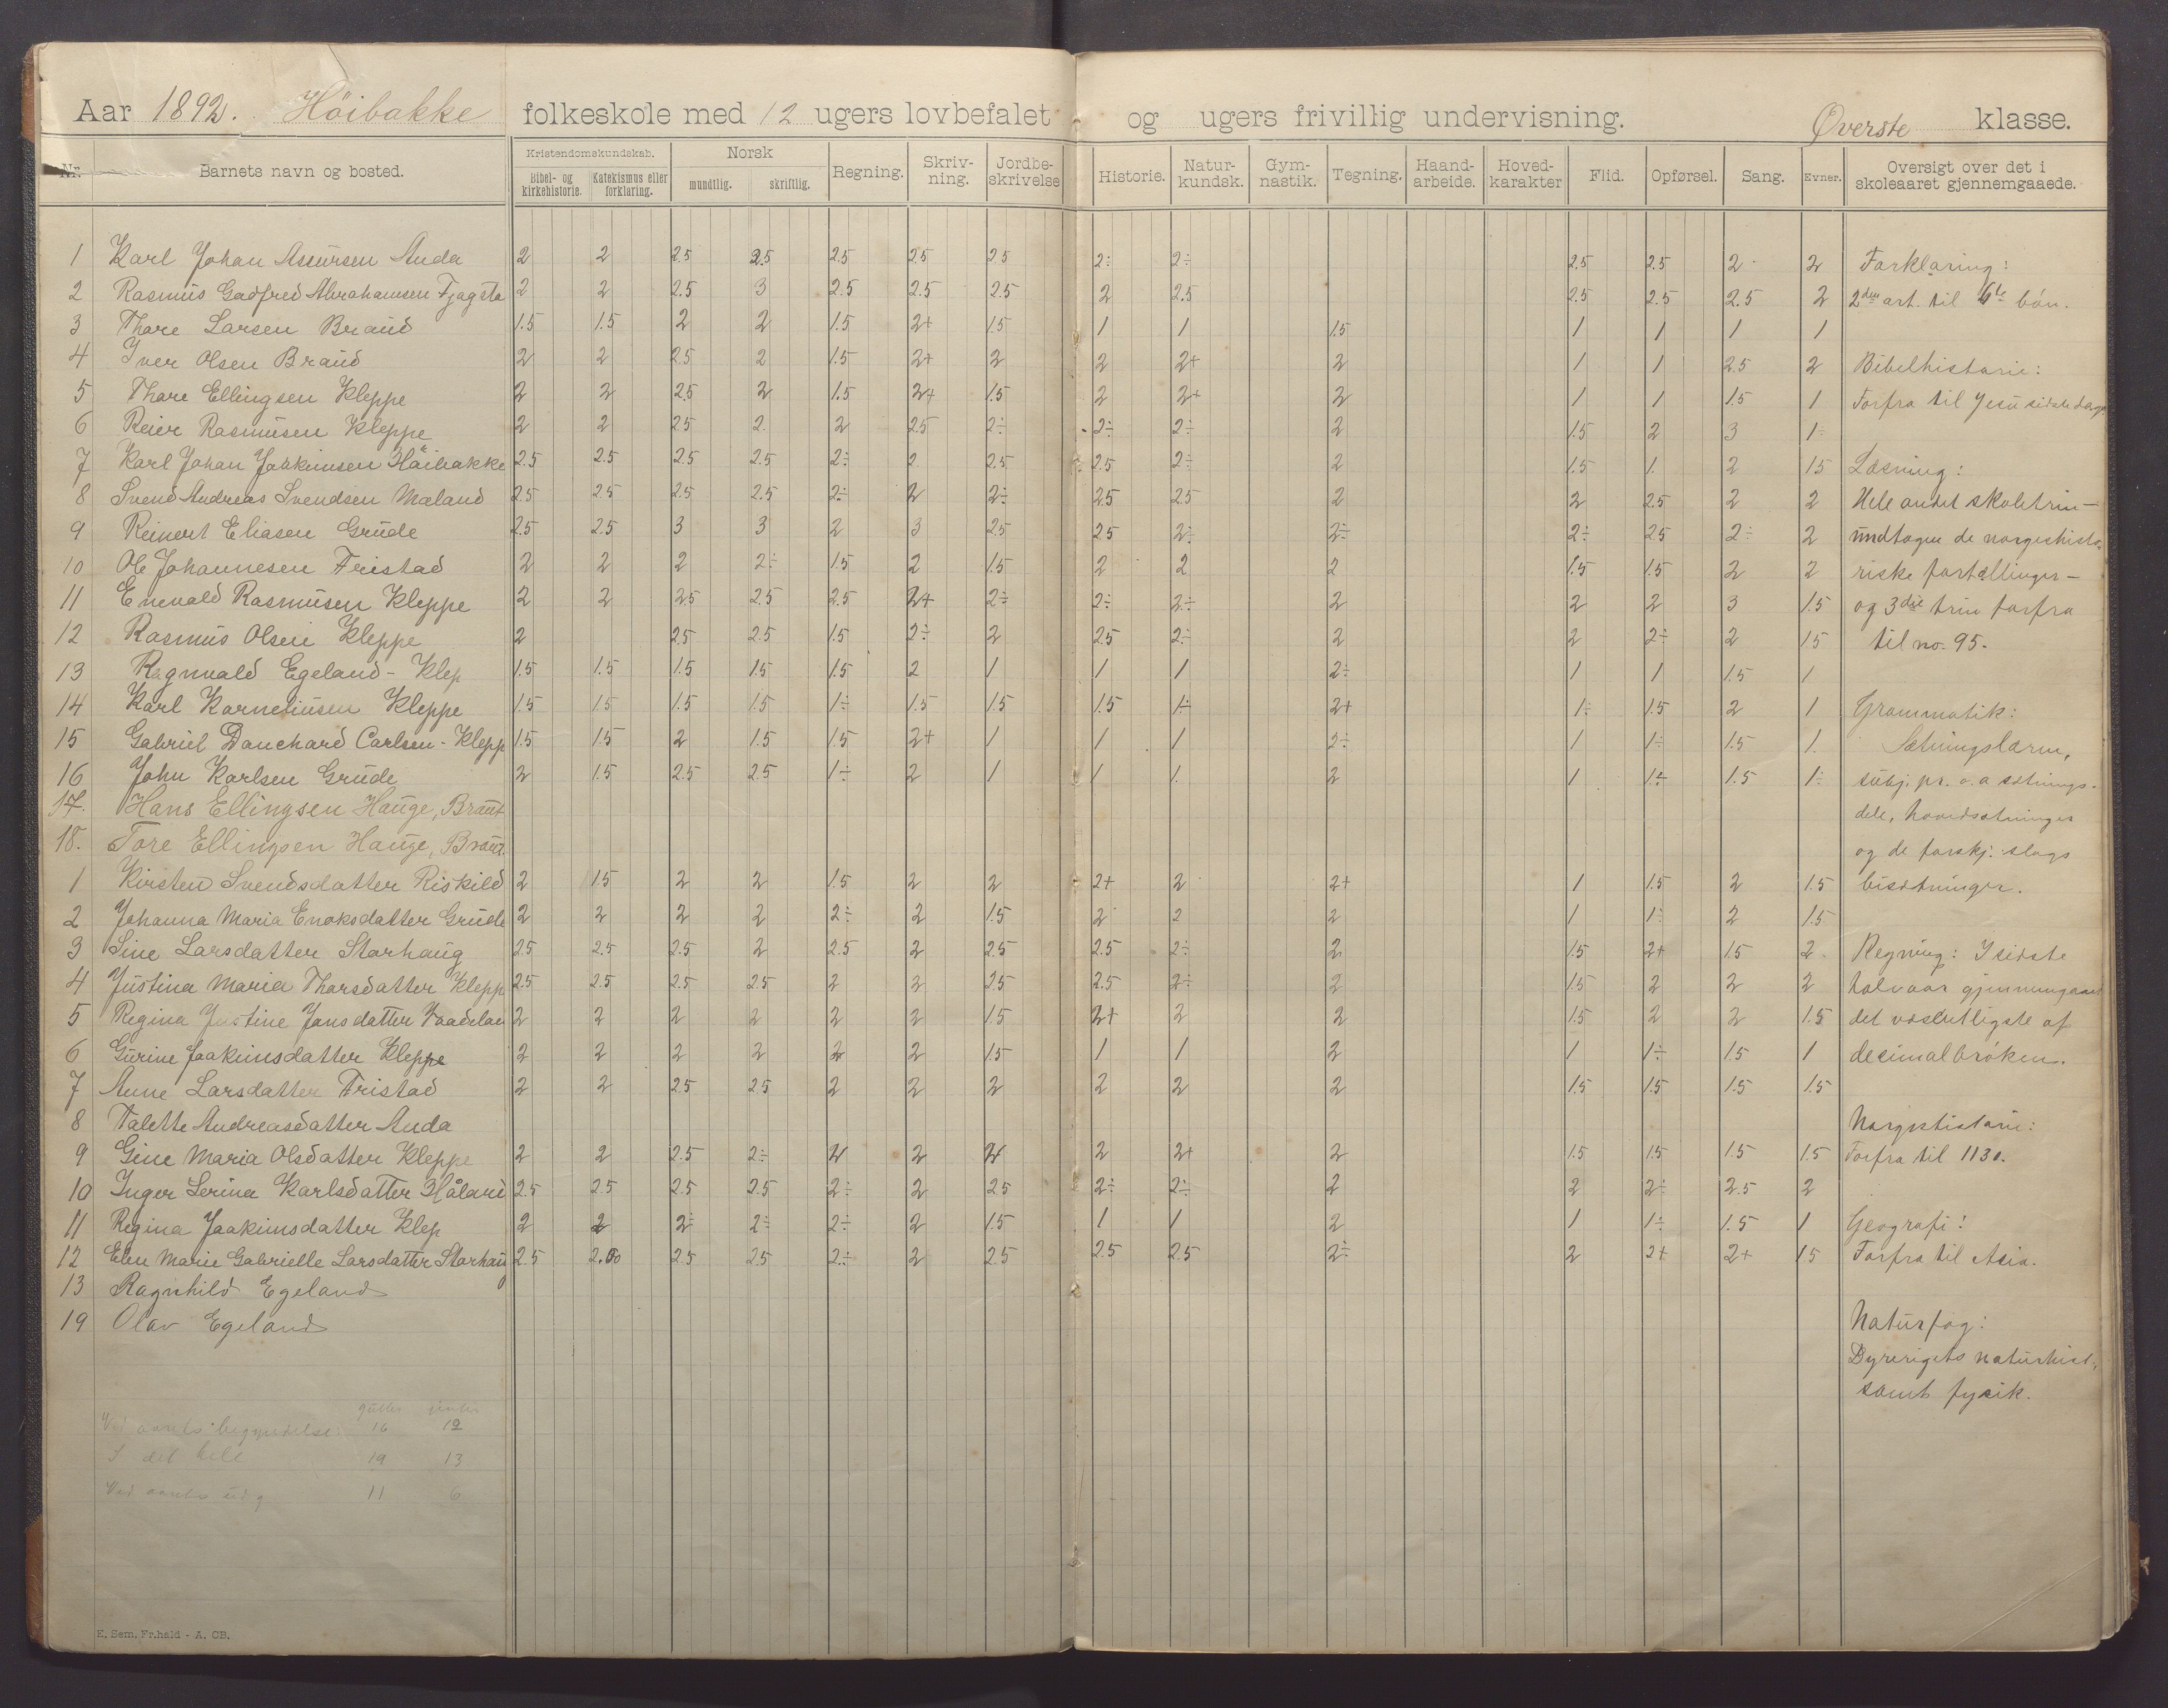 Aar 1892. Höibakke folkeskole med 12 ugers lovbefalet og ugers frivillig undervisning. Øverste klasse.
Nr. Barnets navn og bosted. Kristendomskundskab. Bibel- og kirkehistorie. Katekismus eller forklaring. Norsk mundtlig. skriftlig. Regning. Skriv-ning. Jordbe-skrivelse Historie. Natur-kundsk. Gym-nastik. Tegning. Haand-arbeide. Hoved-karakter Flid. Opførsel. Sang. Evner. Oversigt over det i skoleaaret gjennemgaaede.
1 Karl Johan Assursen Anda 2 2 2.5 2.5 2.5 2.5 2.5 2÷ 2÷ 2.5 2.5 2 2 Forklaring:
2 Rasmus Gadfred Abrahamsen Tjøgsta 2 2 2.5 3 2.5 2.5 2.5 2 2.5 2.5 2.5 2.5 2 2den art. til 6te bön.
3 Thore Larsen Braud 1.5 1.5 2 2 1.5 2+ 1.5 1 1 1.5 1 1 1 1
4 Iver Olsen Braud 2 2 2.5 2 1.5 2+ 2 2 2+ 2 1 1 2.5 2 Bibelhistorie:
5 Thore Ellingsen Kleppe 2 2 2.5 2 1.5 2+ 1.5 2 2+ 2 1 1 1.5 1 Forfra til Jesu sidste dage
6 Reier Rasmusen Kleppe 2 2 2.5 2. 2 2.5 2÷ 2÷ 2÷ 2 1.5 2 3 1÷
7 Karl Johan Joakimsen Håibakke 2.5 2.5 2.5 2.5 2÷ 2 2.5 2.5 2÷ 2 1.5 1. 2 1.5 Læsning:
8 Svend Andreas Svendsen Mæland 2.5 2.5 2.5 2.5 2÷ 2 2÷ 2.5 2.5 2 2 2.5 2 2 Hele andet skoletrin—
9 Reinert Eliasen Grude 2.5 2.5 3 3 2 3 2.5 2.5 2÷ 2÷ 2÷ 2.5 2÷ 2 undtagen de norgeshisto-
10 Ole Johannesen Fristad 2 2 2 2÷ 1.5 2 1.5 2 2 2 1.5 1.5 2 2 riske fortællinger—
11 Enevald Rasmusen Kleppe 2 2 2.5 2.5 2.5 2+ 2÷ 2÷ 2÷ 2 2 2 3 1.5 og 3die trin forfra
12 Rasmus Olsen Kleppe 2 2.5 2.5 1.5 2÷ 2 2.5 2÷ 2 2 2÷ 2 1.5 til no. 95.
13 Ragnvald Egeland - Klep 1.5 1.5 1.5 1.5 1.5 2 1 1 1 2÷ 1 1 1.5 1
14 Karl Korneliusen Kleppe 1.5 1.5 1.5 1.5 1÷ 1.5 1.5 1.5 1÷ 2+ 1÷ 1.5 2 1 Grammatik:
15 Gabriel Danchard Carlsen - Klepp 1.5 1.5 2 1.5 1.5 2+ 1 1 1 2÷ 1 1÷ 1.5 1. Sætningslæren,
16 John Karlsen Grude 2 1.5 2.5 2.5 1÷ 2 1 1 1. 2 1 1÷ 1.5 1÷ subj. pr. o. a sætnings-
17. Hans Ellingsen Hauge, Braut dele, hovedsætninger
18. Tore Ellingsen Hauge, Braut. og de forskj. slags
1 Kirsten Svendsdatter Riskild 2 1.5 2 2 1.5 2 2 2+ 2 2+ 1 1.5 2 1.5 bisætninger.
2 Johanna Maria Enoksdatter Grude 2 2 2 2 2÷ 2 1.5 2 2 2 1 1÷ 2 1.5
3 Sine Larsdatter Storhaug 2.5 2.5 2.5 2 2.5 2 2.5 2.5 2÷ 2 1.5 2+ 1.5 2 Regning: I sidste
4 Justina Maria Thorsdatter Klepp 2.5 2.5 2.5 2.5 2 2 2.5 2.5 2÷ 2 1.5 2 2 2 halvaar gjennemgaaet
5 Regina Justine Jansdatter 2 2 2 2 2 2 1.5 2+ 2 2 1.5 2 2 1.5 det væsentligste af
6 Gurine Joakimsdatter Kleppe 2 2 2 2 2 2 1.5 1 1 2 1 1÷ 1.5 1 decimalbröken.
7 Anne Larsdatter Fristad 2 2 2.5 2.5 2 2 2 2 2 2 1.5 1.5 1.5 1.5
8 Talette Andreasdatter Anda Norgeshistorie:
9 Gine Maria Olsdatter Kleppe 2 2 2.5 2÷ 2 2 2 2 2+ 2 1.5 1.5 1.5 1.5 Forfra til 1130.
10 Inger Serina Karlsdatter Håland 2.5 2.5 2.5 2.5 2÷ 2 2.5 2÷ 2÷ 2 2 2÷ 2.5 2
11 Regina Joakimsdatter Klep 2 2 2÷ 2÷ 2÷ 2 1.5 1 1 2 1 1÷ 1.5 1 Geografi:
12 Elen Marie Gabrielle Larsdatter Storhaug 2.5 2.00 2.5 2.5 2÷ 2 2.5 2.5 2.5 2÷ 2 2+ 2+ 1.5 Forfra til Asia.
13 Ragnhild Egeland
19 Olav Egeland Naturfag:
Dyrerigets naturhist.,
samt fysik.
gutter jenter
Ved aarets begyndelse: 16 12
I det hele 19 13
Ved aarets udg 11 6
E. Sem, Fr.hald - A. CB.